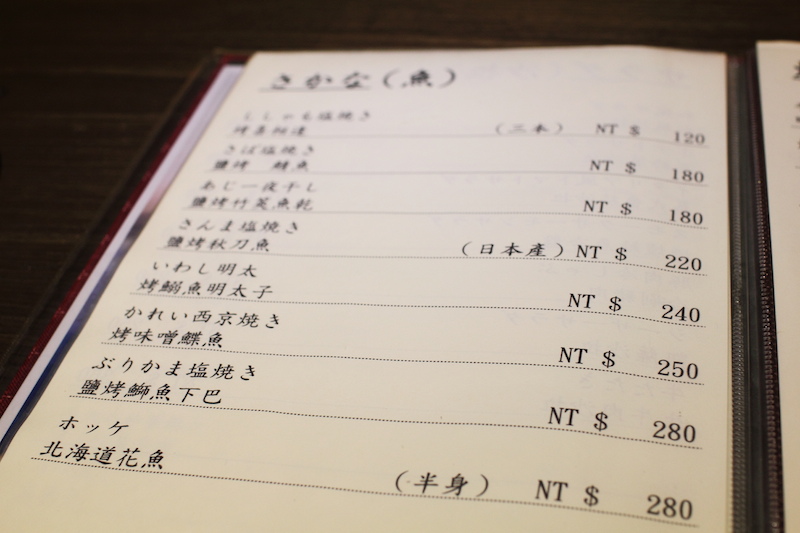 さかな(魚)
ししゃも塩焼き
烤喜相逢 (三本) NT $ 120
さば塩焼き
鹽烤 鯖魚 NT $ 180
あじ一夜干し
鹽烤竹莢魚乾 NT $ 180
さんま塩焼き
鹽烤秋刀魚 (日本產) NT $ 220
いわし明太
烤鰯魚明太子 NT $ 240
かれい西京焼き
烤味噌鰈魚 NT $ 250
ぶりかま塩焼き
鹽烤鰤魚下巴 NT $ 280
ホッケ
北海道花魚 (半身) NT $ 280